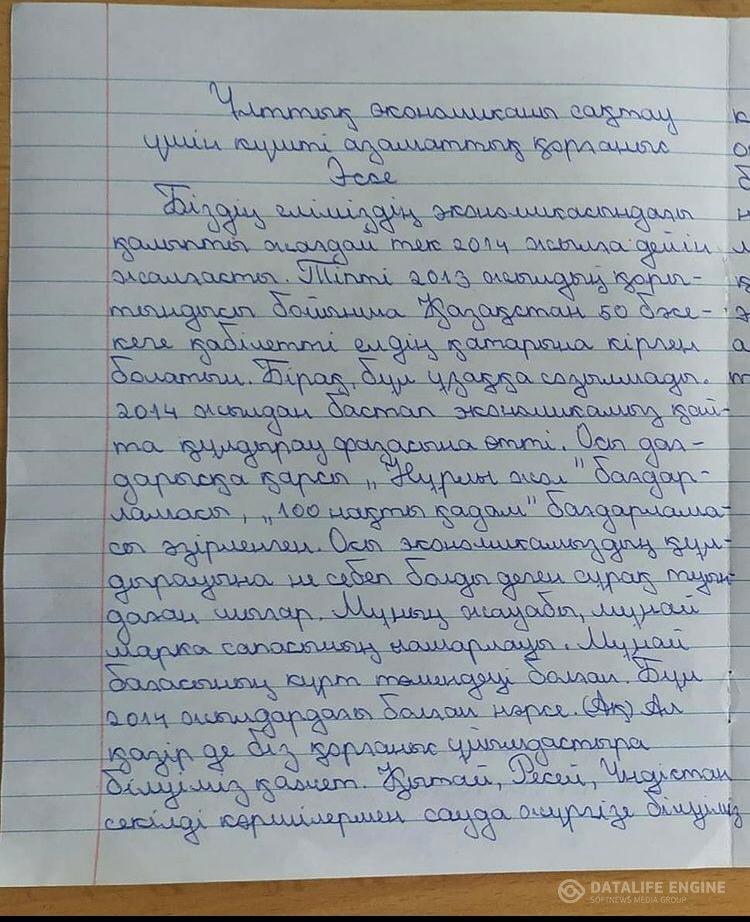 Ұлттық экономиканы сақтау
үшін күшті азаматтық қорғаныс
Эссе
Біздің еліміздің экономикасындағы
қалыпты жағдай тек 2014 жылға дейін
жалғасты. Тіпті 2013 жылдың қоры-
тындысы бойынша Қазақстан 50 бәсе-
кеге қабілетті елдің қатарына кірген
болатын. Бірақ, бұл ұзаққа созылмады.
2014 жылдан бастап экономикамыз қай-
та құлдырау фазасына өтті. Осы дағ-
дарысқа қарсы „Нұрлы жол" бағдар-
ламасы, „100 нақты қадам" бағдарлама-
сы әзірленген. Осы экономикамыздың құл-
дырауына не себеп болды деген сұрақ туын-
даған шығар. Мұның жауабы, мұнай
марка сапасының нашарлауы. Мұнай
бағасының күрт төмендеуі болған. Бұл
2014 жылдардағы болған нәрсе. (Ақ) Ал
қазір де біз қорғаныс ұйымдастыра
білуіміз қажет. Қытай, Ресей, Үндістан
секілді көршілермен сауда жүргізе білуіміз
к
о
б
н
м
қ
э
а
т
DATALIFE ENGINE
SOFTNEWS MEDIA GROUP